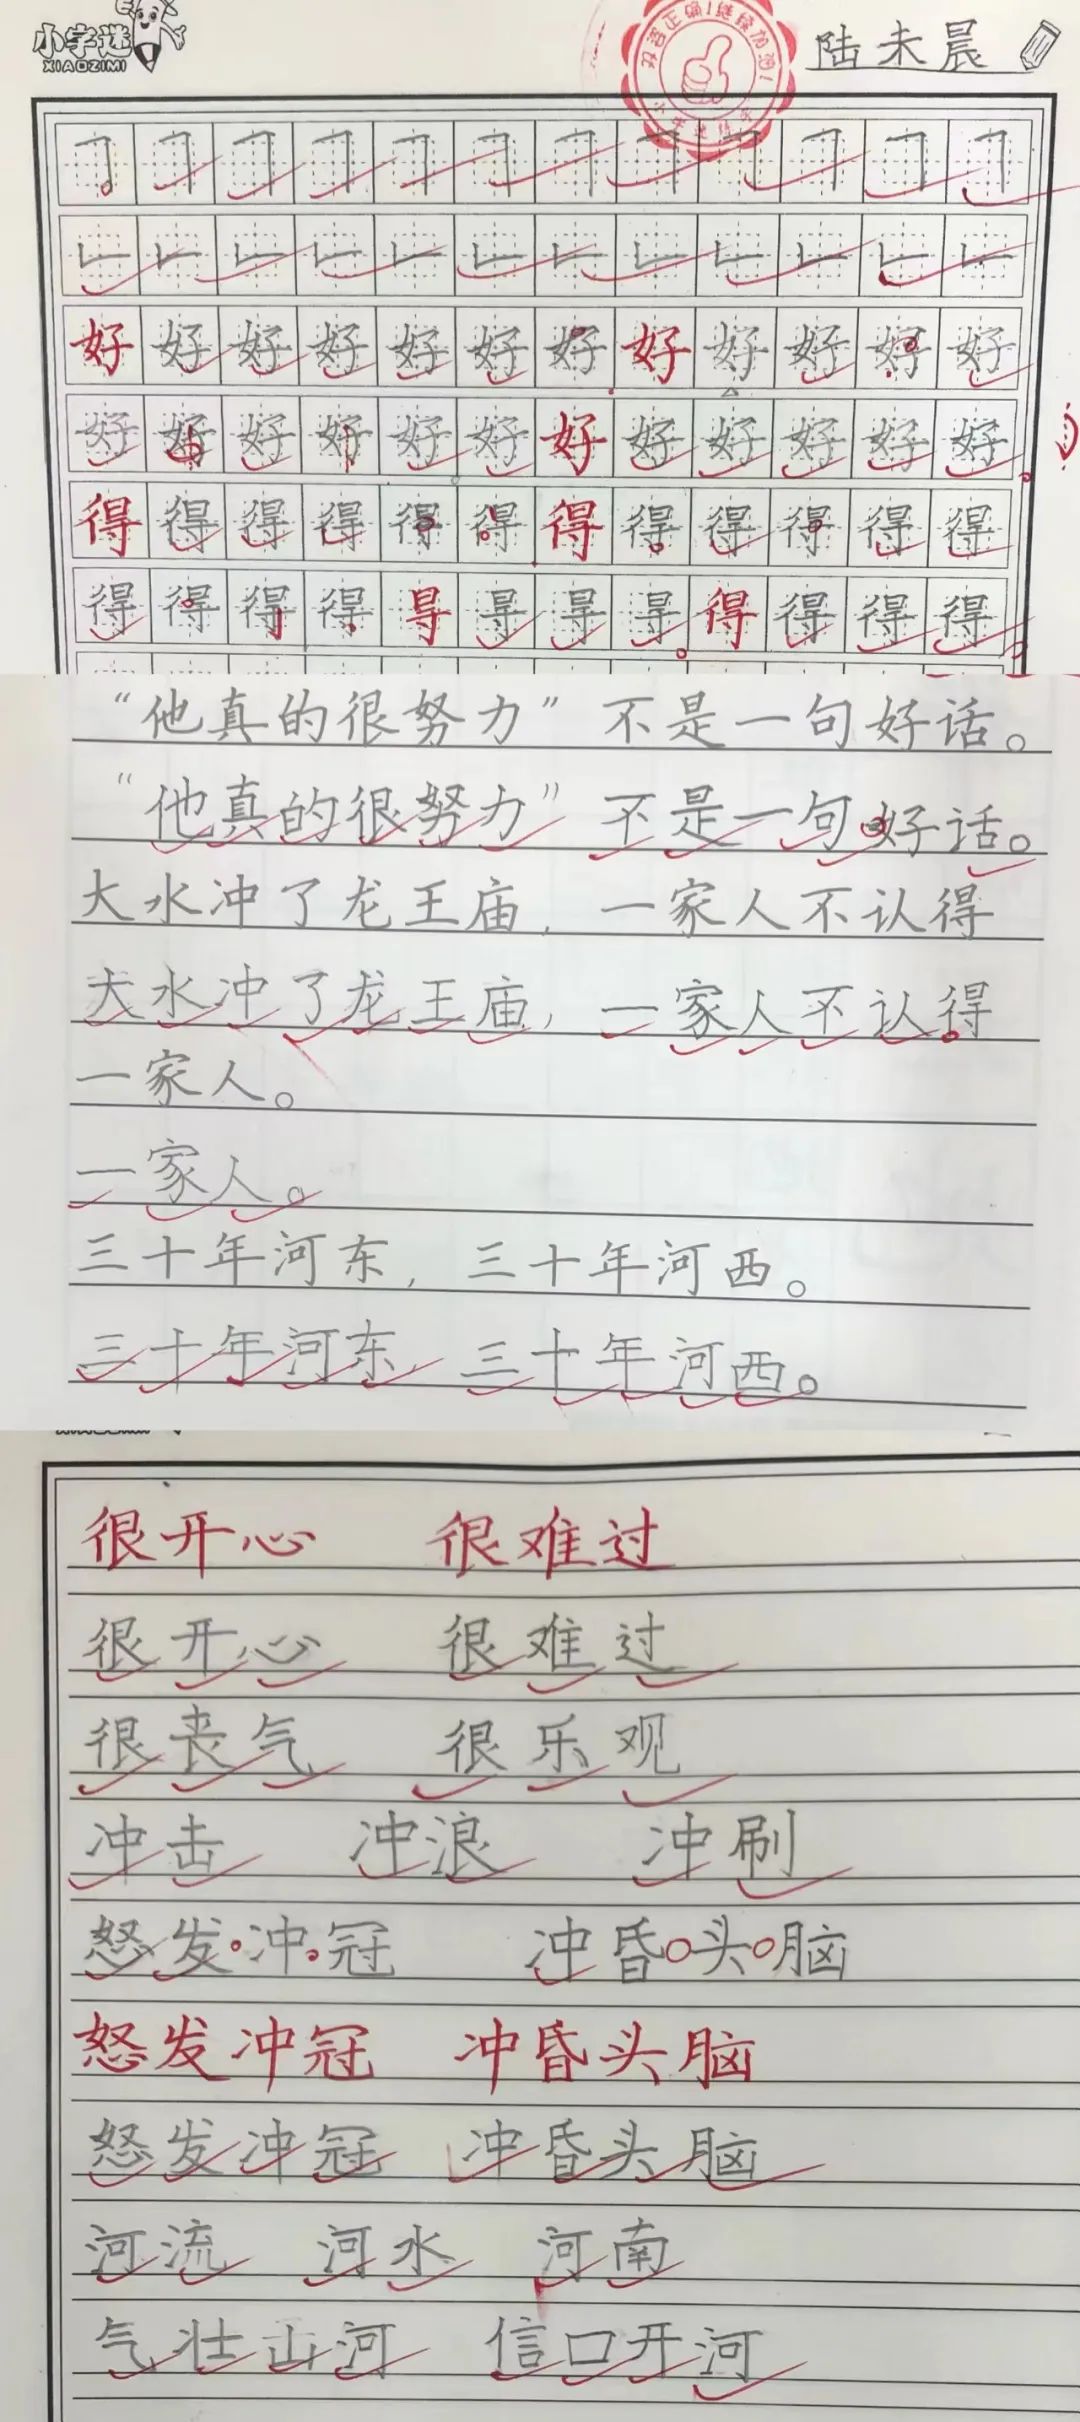 小字迷
XIAOZIMI
双姿正确！继续加油！
陆未晨
好好好好好好好好好好好好
好好好好好好好好好好好好
得得得得得得得得得得得得
得得得得㝵㝵㝵㝵得得得得
“他真的很努力”不是一句好话。
“他真的很努力”不是一句好话。
大水冲了龙王庙，一家人不认得
大水冲了龙王庙，一家人不认得
一家人。
一家人。
三十年河东，三十年河西。
三十年河东，三十年河西。
很开心 很难过
很开心 很难过
很丧气 很乐观
冲击 冲浪 冲刷
怒发冲冠 冲昏头脑
怒发冲冠 冲昏头脑
怒发冲冠 冲昏头脑
河流 河水 河南
气壮山河 信口开河